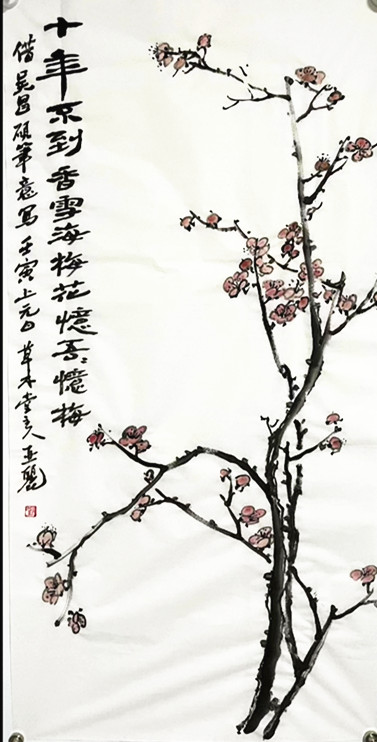 十年不到香雪海梅花憶吾々憶梅
借吴昌碩筆意写壬寅上元日草木堂主人亚麗